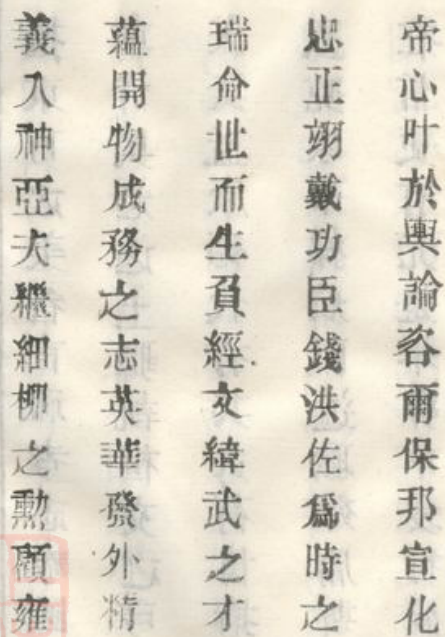 帝心叶於輿論咨爾保邦宣化
忠正翊戴功臣錢洪佐爲時之
瑞命世而生負經文緯武之才
蘊開物成務之志英華發外精
義入神亞夫繼細柳之勳顧雍